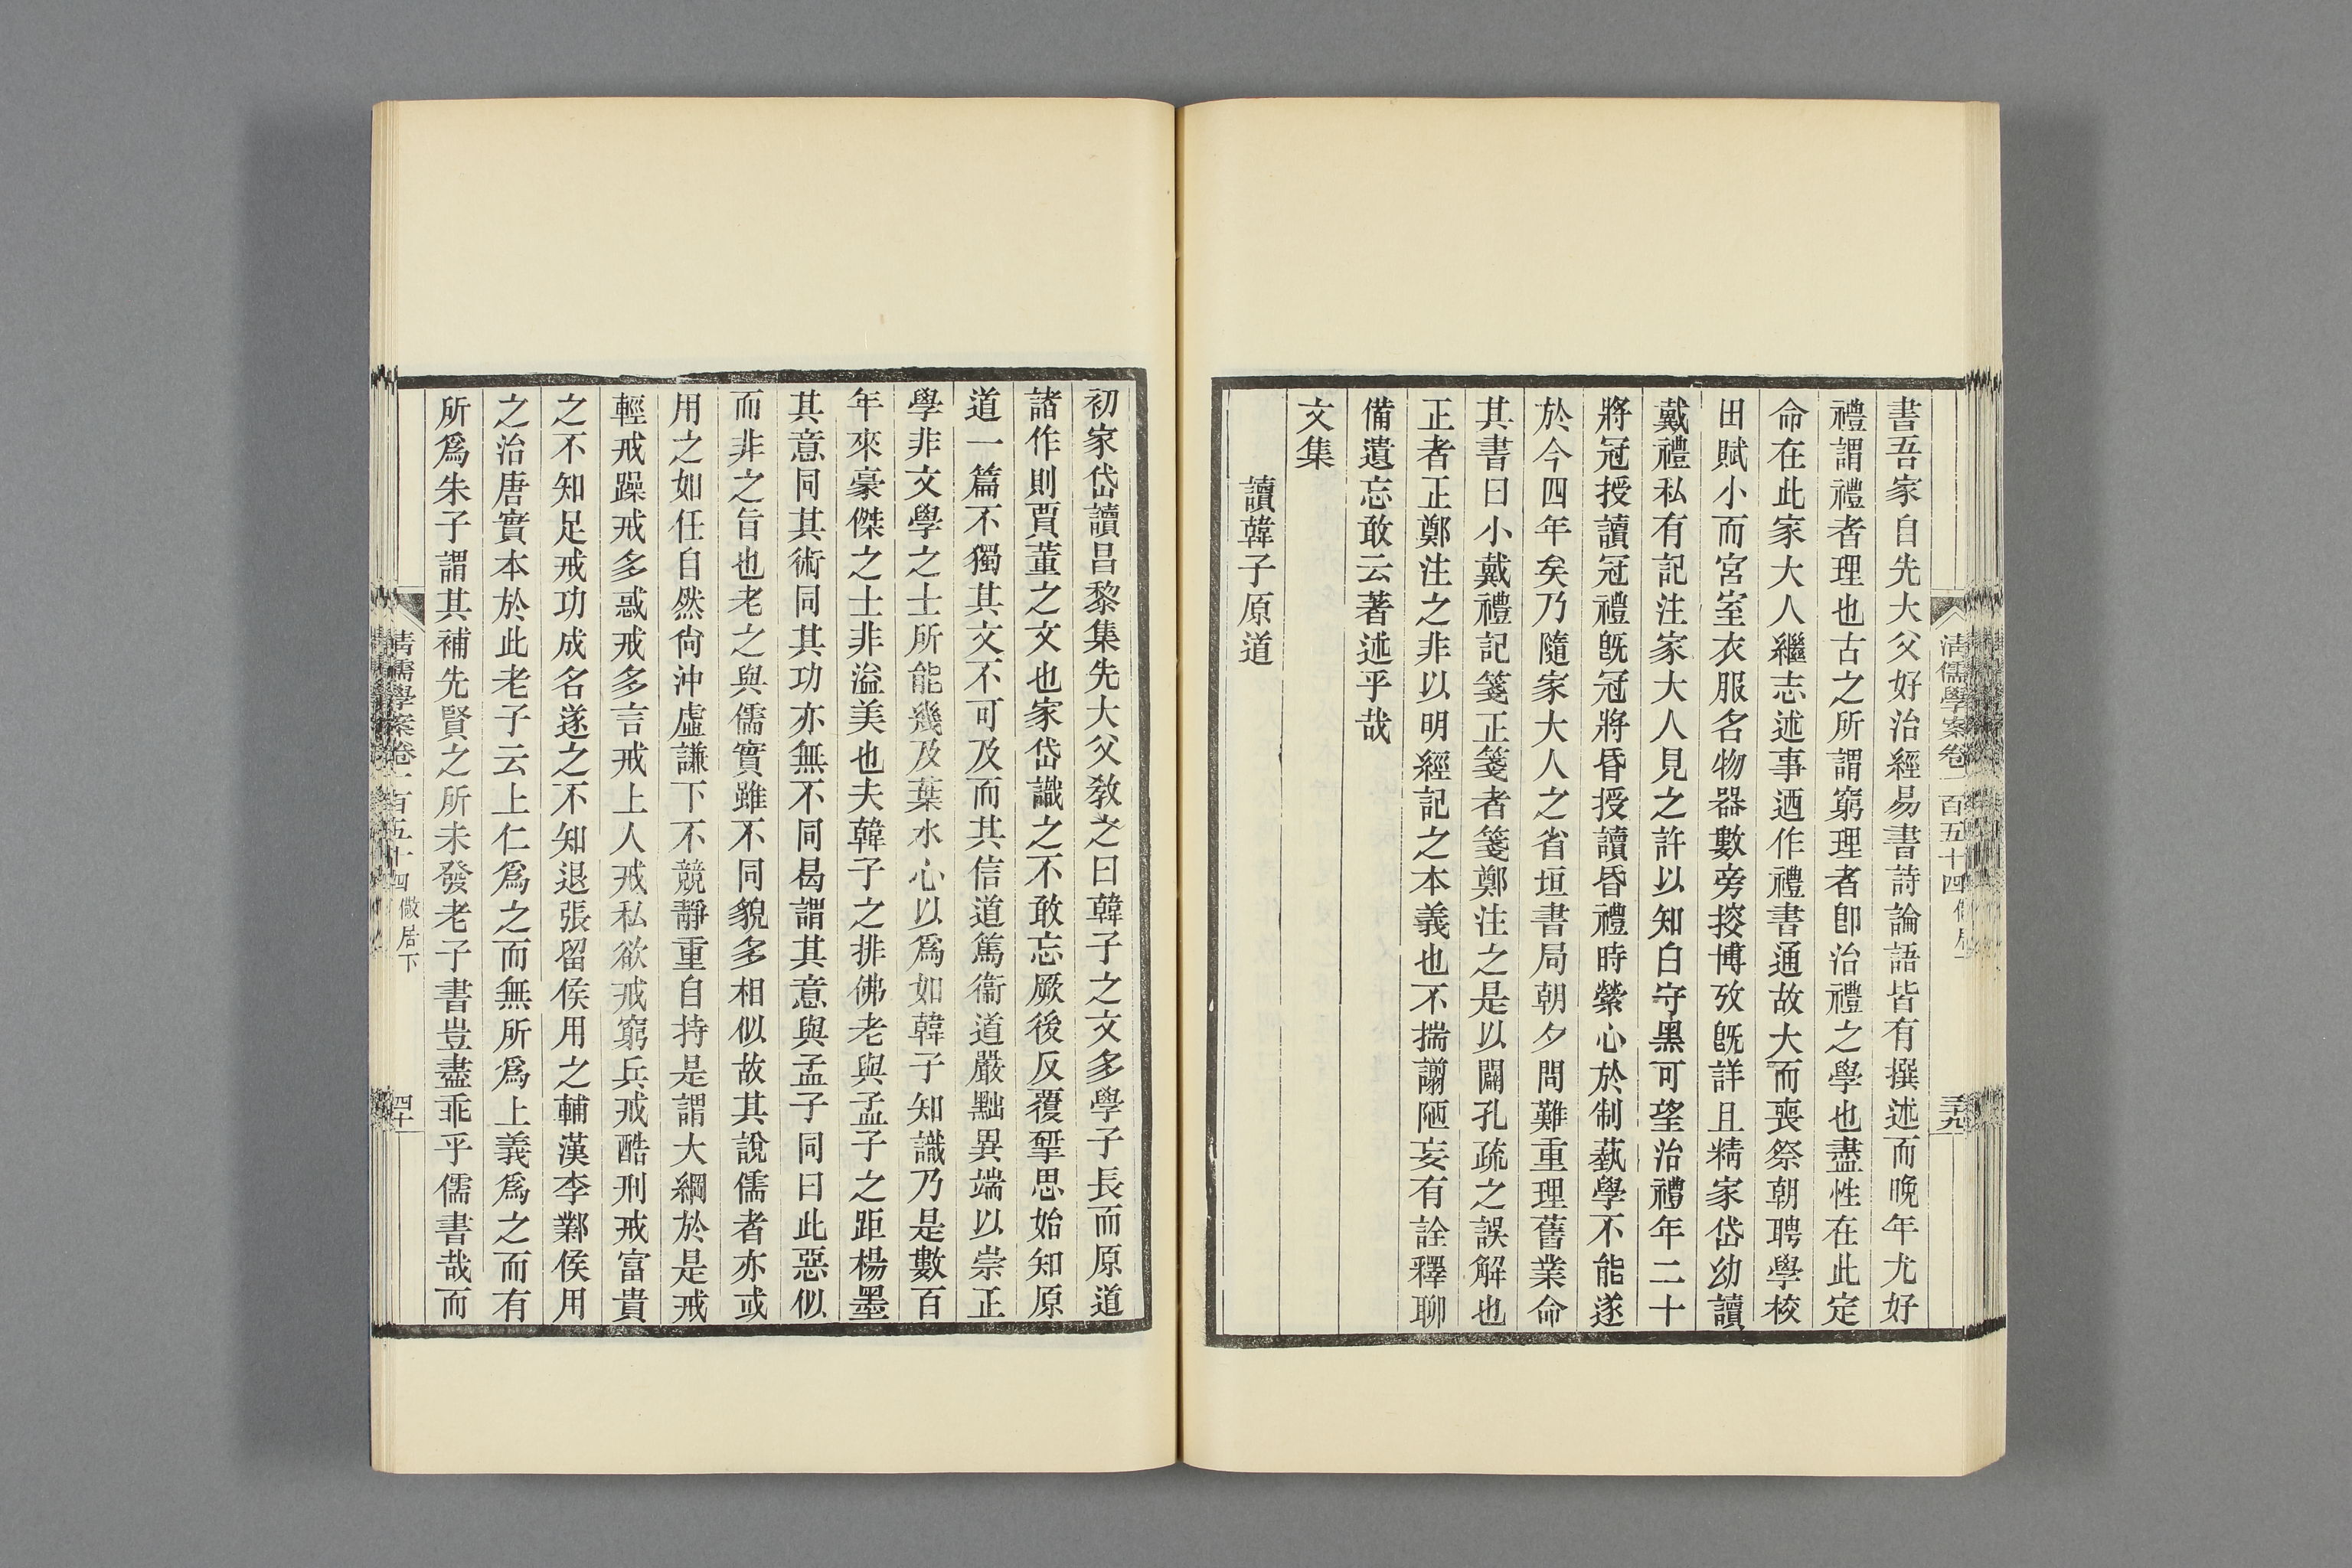 書吾家自先大父好治經易書詩論語皆有撰述而晚年尤好
禮謂禮者理也古之所謂窮理者卽治禮之學也盡性在此定
命在此家大人繼志述事迺作禮書通故大而喪祭朝聘學校
田賦小而宮室衣服名物器數旁搜博攷旣詳且精家岱幼讀
戴禮私有記注家大人見之許以知白守黑可望治禮年二十
將冠授讀冠禮旣冠將昏授讀昏禮時縈心於制蓺學不能遂
於今四年矣乃隨家大人之省垣書局朝夕問難重理舊業命
其書曰小戴禮記箋正箋者箋鄭注之是以闢孔疏之誤解也
正者正鄭注之非以明經記之本義也不揣謭陋妄有詮釋聊
備遺忘敢云著述乎哉
文集
讀韓子原道
清儒學案卷一百五十四
三十九
初家岱讀昌黎集先大父敎之曰韓子之文多學子長而原道
諸作則賈董之文也家岱識之不敢忘厥後反覆揅思始知原
道一篇不獨其文不可及而其信道篤衞道嚴黜異端以崇正
學非文學之士所能幾及葉水心以爲如韓子知識乃是數百
年來豪傑之士非溢美也夫韓子之排佛老與孟子之距楊墨
其意同其術同其功亦無不同曷謂其意與孟子同曰此惡似
而非之旨也老之與儒實雖不同貌多相似故其說儒者亦或
用之如任自然尙沖虛謙下不競靜重自持是謂大綱於是戒
輕戒躁戒多惑戒多言戒上人戒私欲戒窮兵戒酷刑戒富貴
之不知足戒功成名遂之不知退張留侯用之輔漢李鄴侯用
之治唐實本於此老子云上仁爲之而無所爲上義爲之而有
所爲朱子謂其補先賢之所未發老子書豈盡乖乎儒書哉而
清儒學案卷一百五十四 儆居下
四十